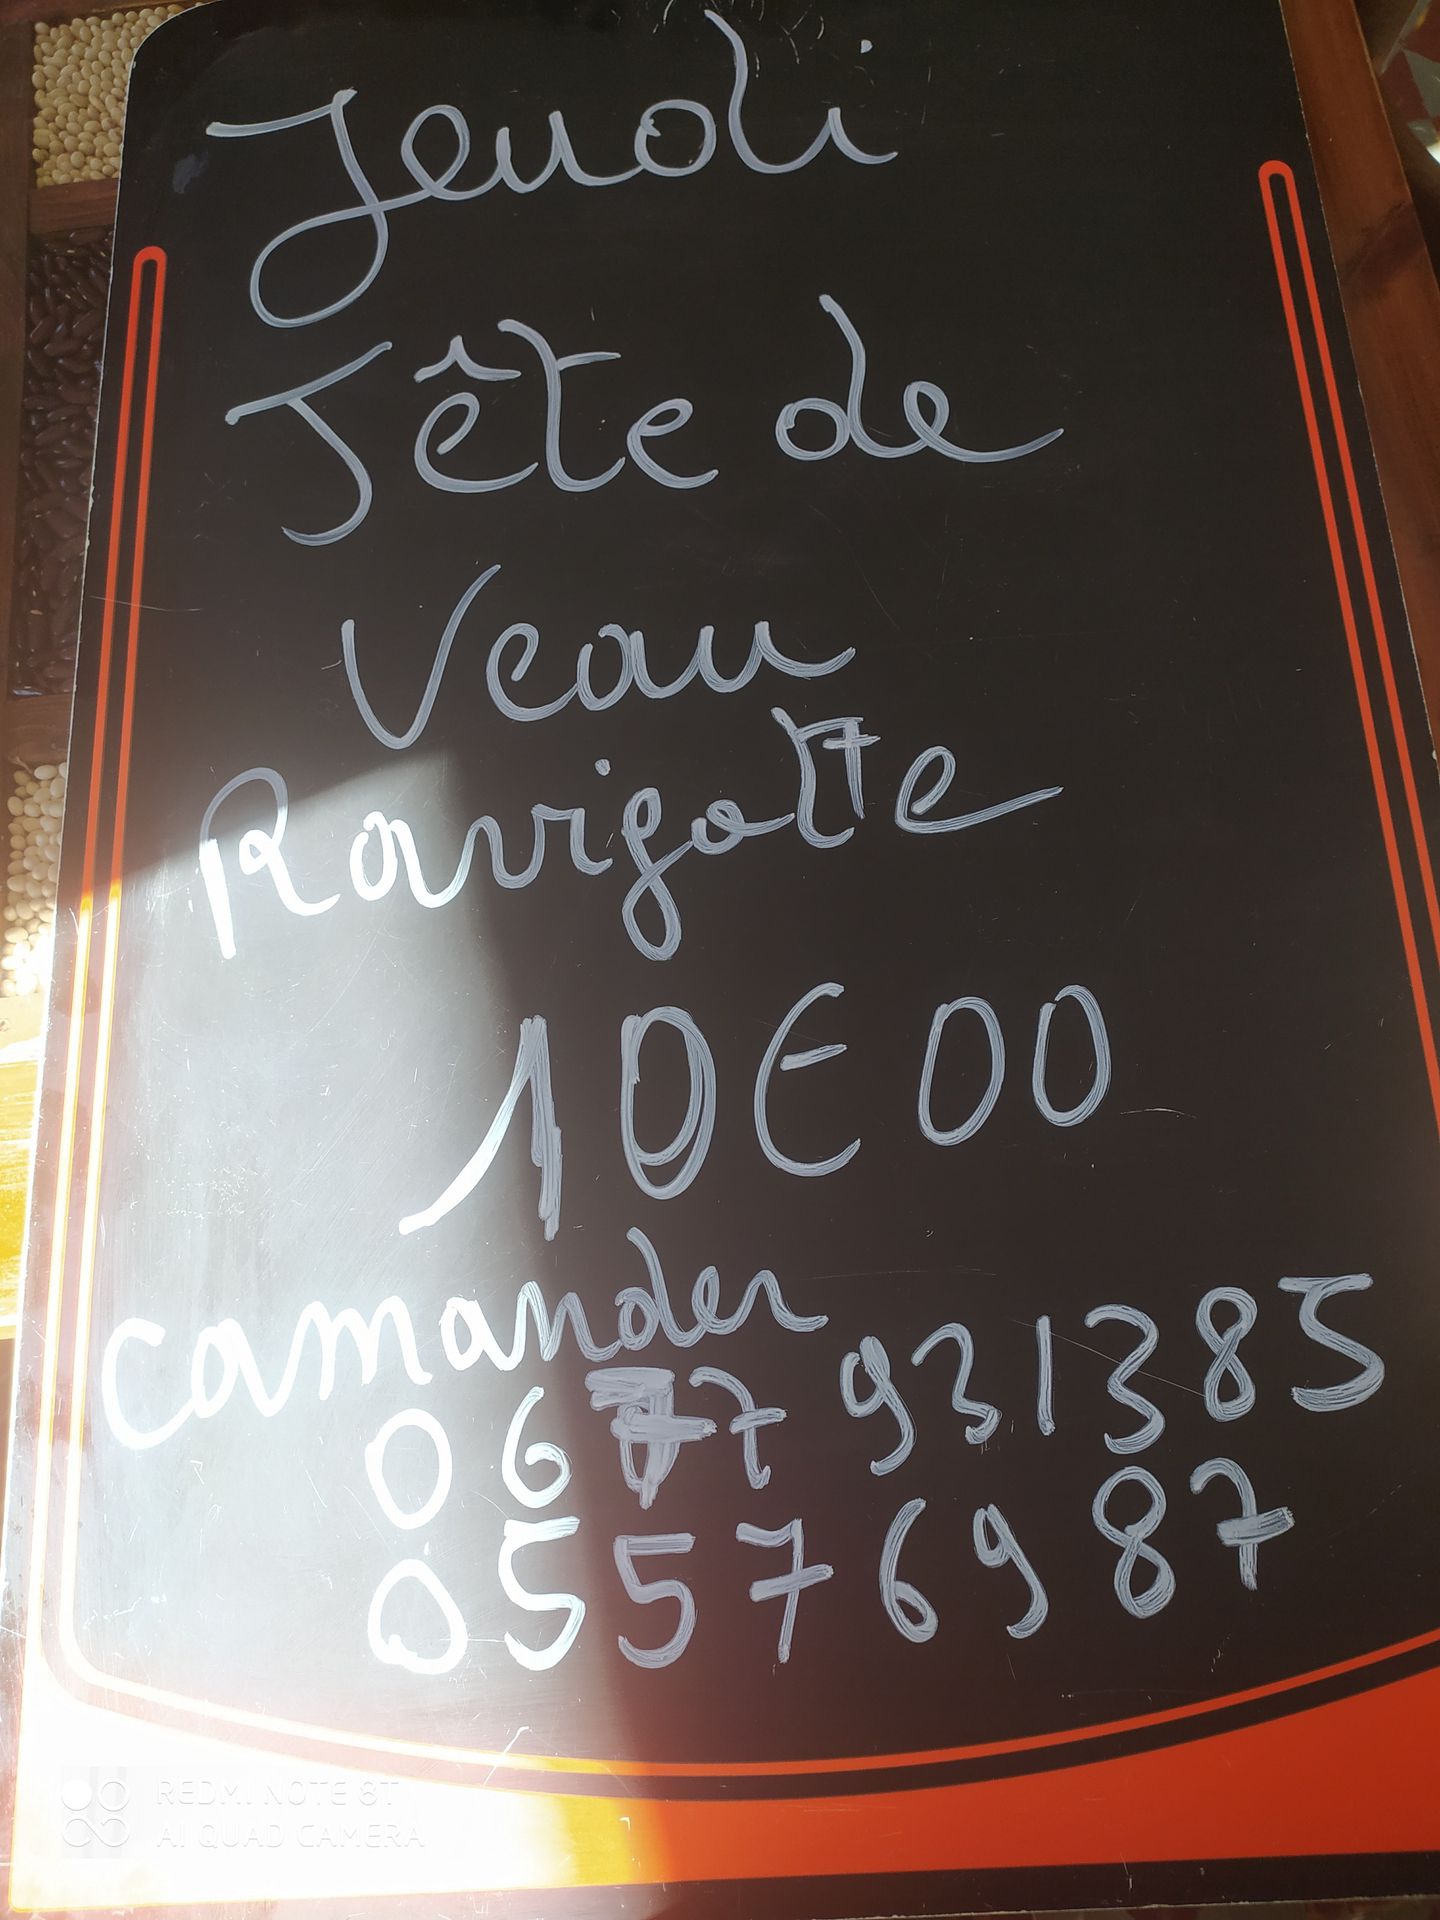 Jeudi
Tête de
Veau
Ravigotte
10€00
Camander
0677 931385
0557 69 87
REDMI NOTE 8T
AI QUAD CAMERA